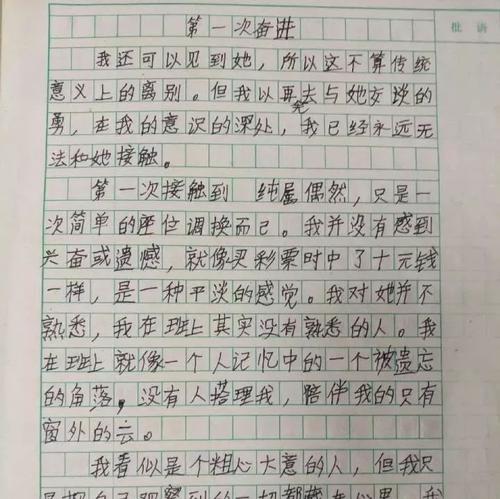 批语
第一次奋进
我还可以见到她，所以这不算传统
意义上的离别。但我以再去与她交谈的
勇，在我的意识的深处，我已经永远无
法和她接触。
第一次接触到 纯属偶然，只是一
次简单的座位调换而已。我并没有感到
兴奋或遗憾，就像买彩票时中了十元钱
一样，是一种平淡的感觉。我对她并不
熟悉，我在班上其实没有熟悉的人。我
在班上就像一个人记忆中的一个被遗忘
的角落，没有人搭理我，陪伴我的只有
窗外的云。
我看似是个粗心大意的人，但我只
是把自己观察到的一切都藏在心里。我